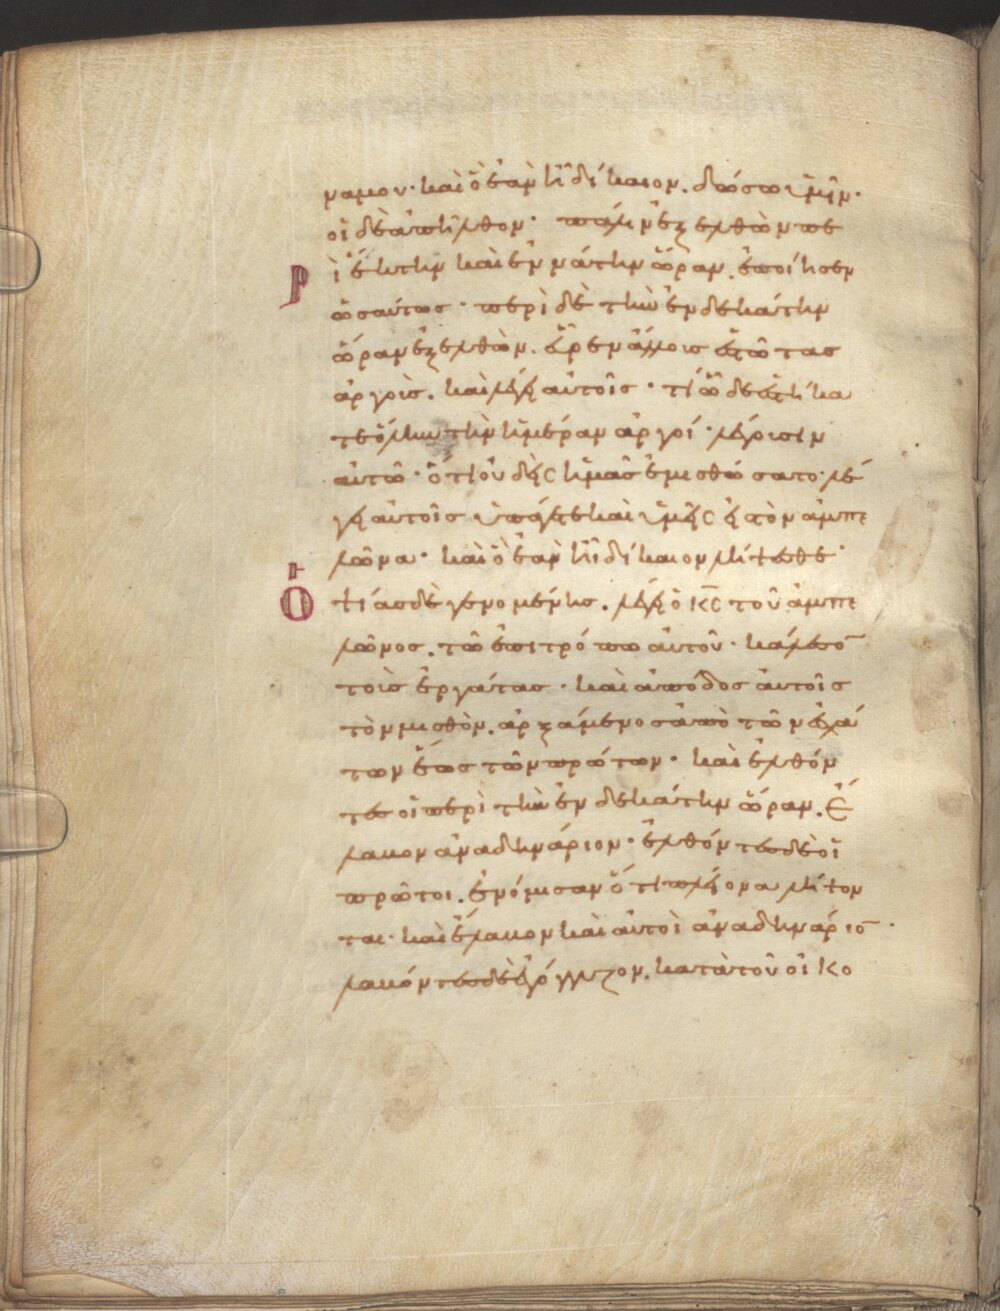 ναμον· καὶ ὃ ἐὰν ἦ δίκαιον. δώσω ὑμῖν·
οἱ δὲ ἀπῆλθον· πάλιν ἐξελθὼν πε
ρὶ ἕκτην καὶ ἐννάτην ὥραν. ἐποίησεν
ὡσαύτως· περὶ δὲ τὴν ἑνδεκάτην
ὥραν ἐξελθὼν. εὗρεν ἄλλους ἑστῶτας
ἀργοὺς. καὶ λέγει αὐτοῖς· τί ὧδε ἑστήκα
τε ὅλην τὴν ἡμέραν ἀργοί· λέγουσιν
αὐτῶ· ὅτι οὐδεὶς ἡμᾶς ἐμισθώσατο· λέ
γει αὐτοῖς ὑπάγετε καὶ ὑμεῖς εἰς τὸν ἀμπε
λῶνα· καὶ ὃ ἐὰν ἦ δίκαιον λήψεσθε·
Ὀψίας δὲ γενομένης. λέγει ὁ κς τοῦ ἀμπε
λῶνος. τῶ ἐπιτρόπω αὐτοῦ· κάλεσο
τοὺς ἐργάτας· καὶ ἀπόδος αὐτοῖς
τὸν μισθὸν. ἀρξάμενος ἀπὸ τῶν ἐσχά
των ἕως τῶν πρώτων· καὶ ἐλθόν
τες οἱ περὶ τὴν ἑνδεκάτην ὥραν. ἔ
λαβον ἀνα δηνάριον· ἐλθόντες δὲ οἱ
πρῶτοι. ἐνόμισαν ὅτι πλείονα λήψον
ται· καὶ ἔλαβον καὶ αὐτοὶ ἀνα δηνάριο·
λαβόντες δὲ ἐγόγγυζον. κατὰ τοῦ οἰκο